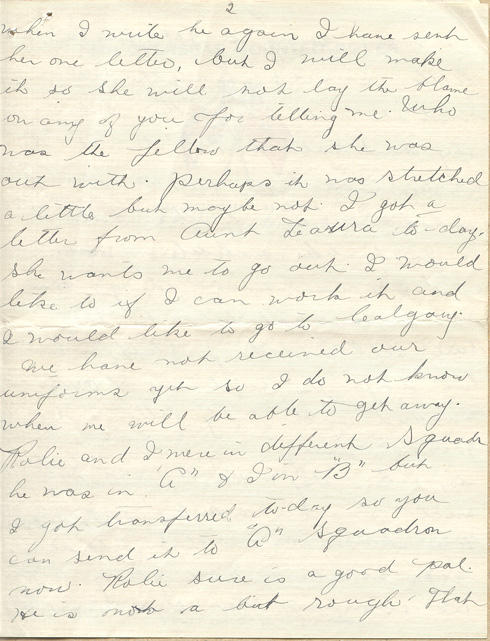 2
when I write he again I have sent
her one letter, but I will make
it so she will not lay the blame
on any of you for telling me. Who
was the fellow that she was
out with. perhaps it was stretched
a little but maybe not. I got a
letter from Aunt Leaura to-day.
she wants me to go out. I would
like to if I can work it and
I would like to go to Calgary.
We have not received our
uniforms yet so I do not know
when we will be able to get away.
Rolie and I were in different Squadr
he was in "A" & I in "B" but
I got transferred to-day so you
can send it to "A" Squadron
now. Rolie sure is a good pal.
He is not a bit rough. That